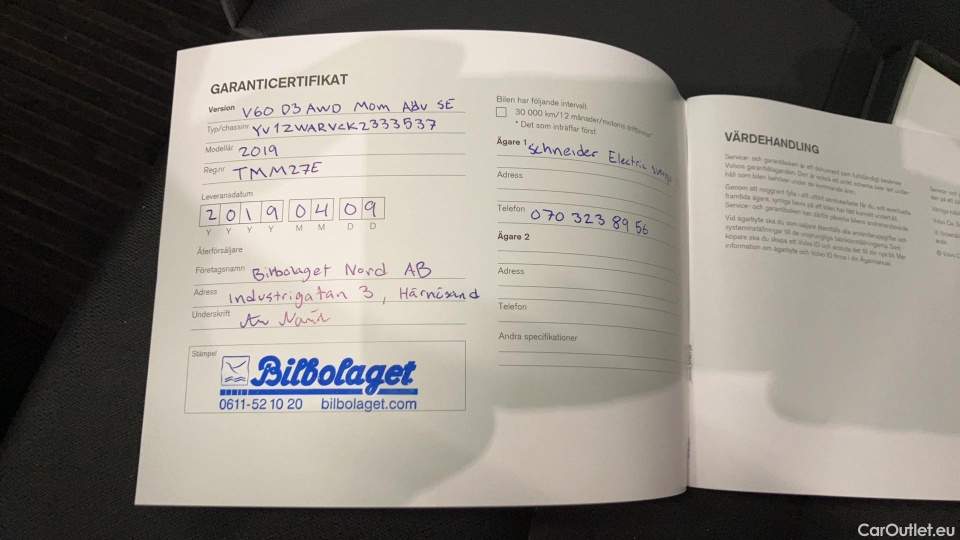 GARANTICERTIFIKAT
Version V60 D3 AWD Mom Adv SE
Typ/chassinr YV1ZWARVCK2333537
Modellår 2019
Reg.nr TMM27E
Leveransdatum
2 0 1 9 0 4 0 9
Y Y Y Y M M D D
Återförsäljare
Företagsnamn Bilbolaget Nord AB
Adress Industrigatan 3, Härnösand
Underskrift
Stämpel
Bilbolaget
0611-52 10 20 bilbolaget.com
Bilen har följande intervall:
30 000 km/12 månader/motorns drifttimmar*
* Det som inträffar först
Ägare 1 Schneider Electric Sverige
Adress
Telefon 070 323 89 56
Ägare 2
Adress
Telefon
Andra specifikationer
VÄRDEHANDLING
Service- och garantiboken är ett dokument som fullständigt beskriver
Volvos garantiåtaganden. Den är också ett unikt schema över det underhåll
håll som bilen behöver under de kommande åren.
Genom att noggrant fylla i allt utfört servicearbete får du, och eventuella
framtida ägare, synliga bevis på att bilen har fått korrekt underhåll.
Service- och garantiboken kan därför påverka bilens andrahandsvärde.
Vid ägarbyte ska du som säljare återställa alla användaruppgifter och
systeminställningar till de ursprungliga fabriksinställningarna. Som
köpare ska du skapa ett Volvo ID och ansluta det till din nya bil. Mer
information om ägarbyte och Volvo ID finns i din Ägarmanual.
CarOutlet.eu